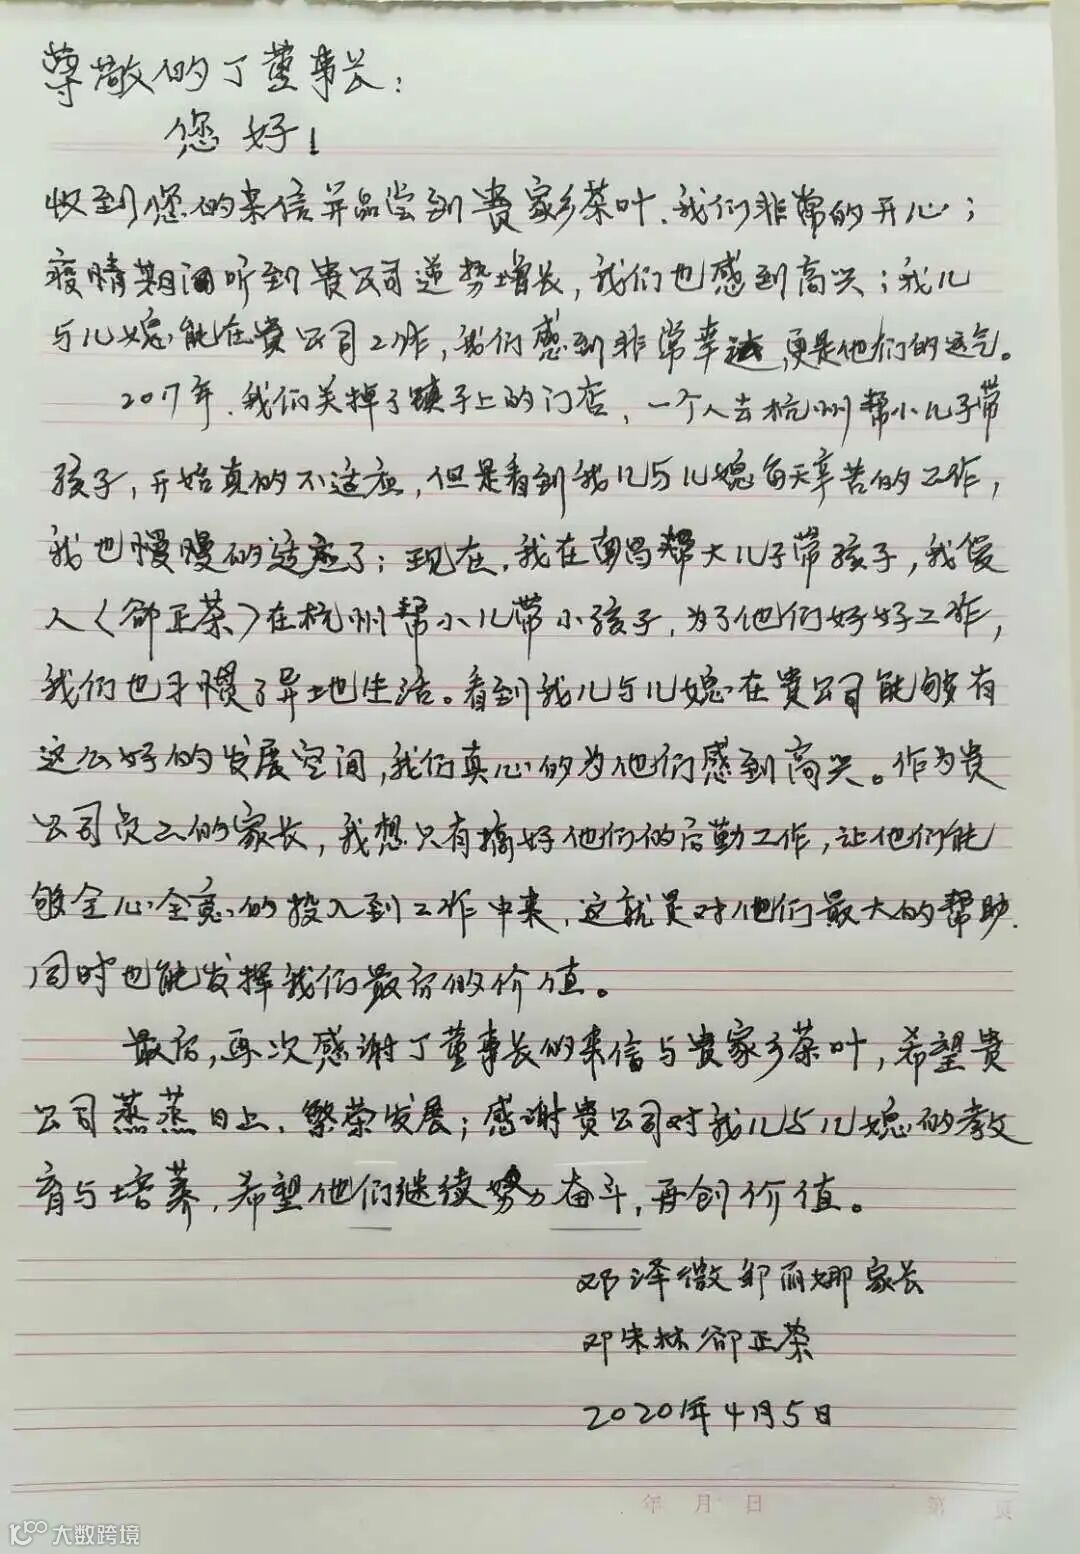 尊敬的丁董事长：
您好！
收到您的来信并品尝到贵家乡茶叶，我们非常的开心；
疫情期间听到贵公司逆势增长，我们也感到高兴；我儿
与儿媳能在贵公司工作，我们感到非常幸运，更是他们的运气。
2017年，我们关掉了镇子上的门店，一个人去杭州帮小儿子带
孩子，开始真的不适应，但是看到我儿与儿媳每天辛苦的工作，
我也慢慢的适应了；现在，我在南昌帮大儿子带孩子，我爱
人（邰正荣）在杭州帮小儿带小孩子，为了他们好好工作，
我们也习惯了异地生活。看到我儿与儿媳在贵公司能够有
这么好的发展空间，我们真心的为他们感到高兴。作为贵
公司员工的家长，我想只有搞好他们的后勤工作，让他们能
够全心全意的投入到工作中来，这就是对他们最大的帮助，
同时也能发挥我们最后的价值。
最后，再次感谢丁董事长的来信与贵家乡茶叶，希望贵
公司蒸蒸日上，繁荣发展；感谢贵公司对我儿与儿媳的教
育与培养，希望他们继续努力奋斗，再创价值。
邓泽微邹丽娜家长
邓朱林 正荣
2020年4月5日
年 月 日
第 页
大数跨境